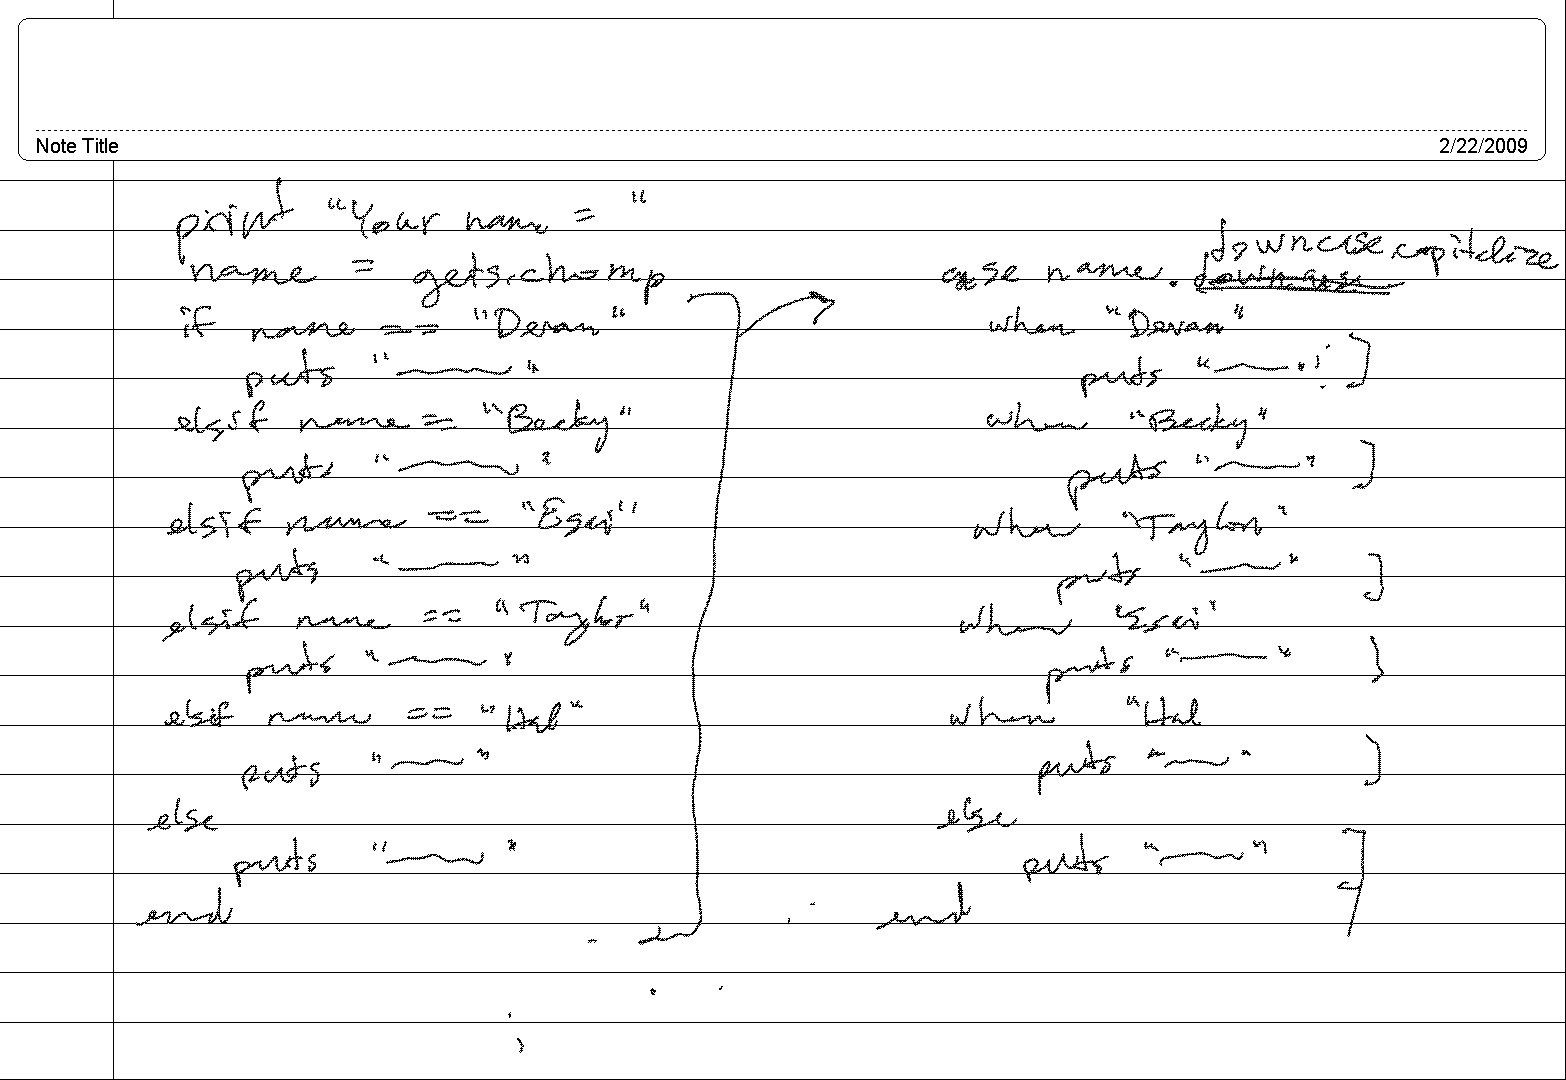 Note Title
2/22/2009
print "Your name = "
name = gets.chomp
if name == "Devan"
puts "
elsif name == "Becky"
puts " "
elsif name == "Esai"
puts " "
elsif name == "Taylor"
puts " "
elsif name == "Hal"
puts " "
else
puts " "
end
downcase.capitalize
case name.downcase
when "Devan"
puts "
when "Becky"
puts " "
when "Taylor"
puts " "
when "Esai"
puts " "
when "Hal
puts " "
else
puts " "
end